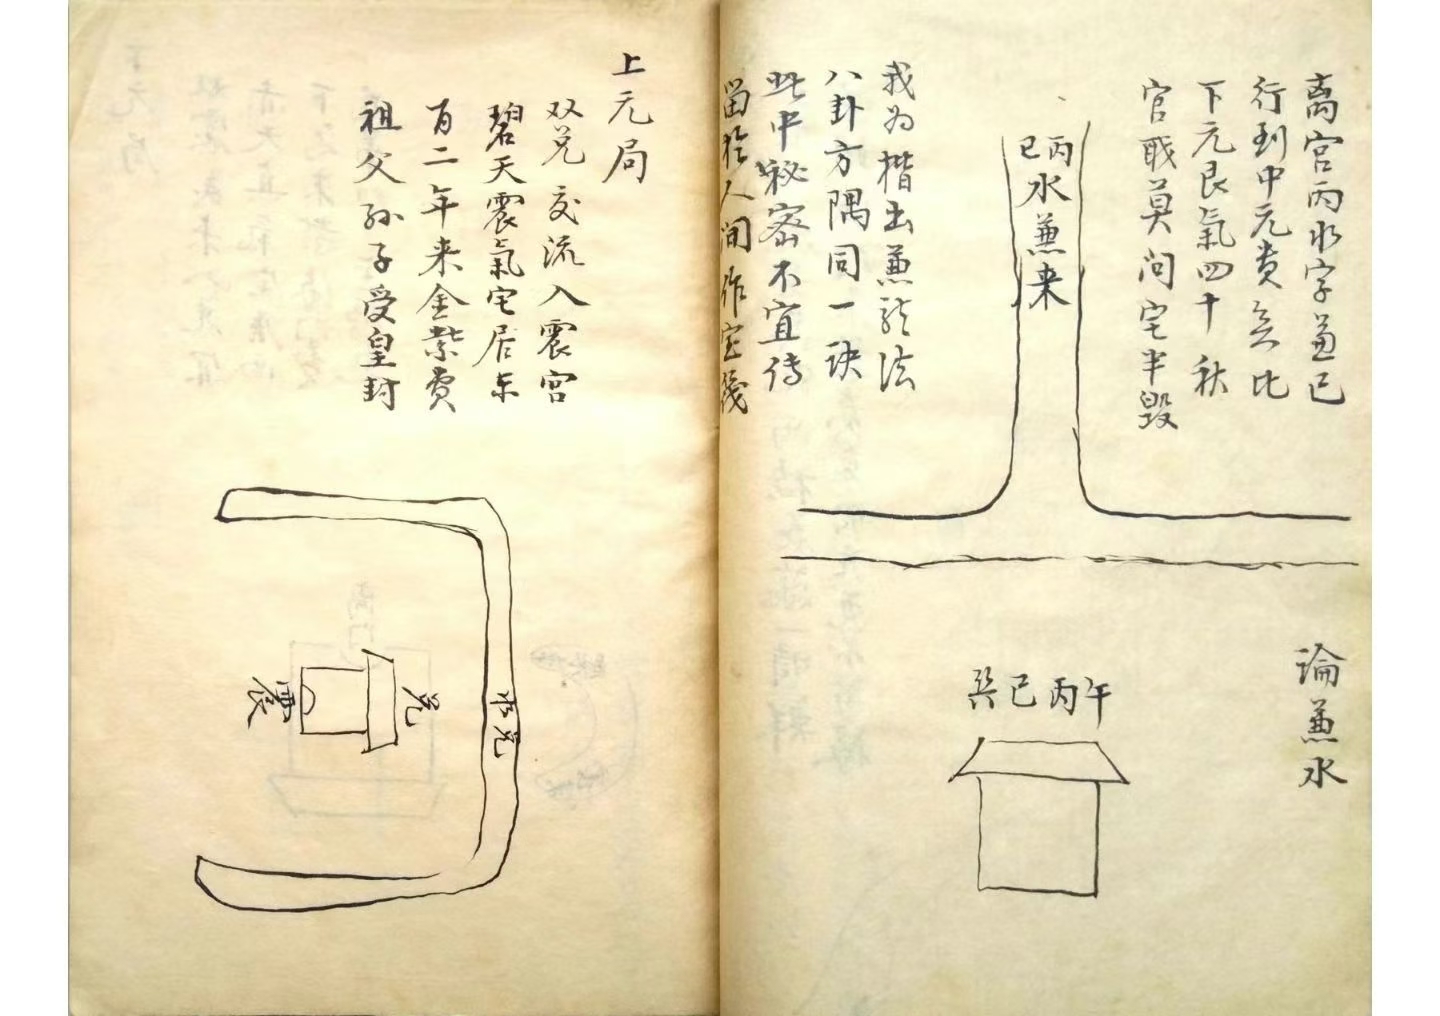 离宫丙水字兼巳
行到中元贵无比
下元艮氣四十秋
官戢莫问宅半毁
丙巳
水兼来
我为楷出兼龍法
八卦方隅同一诀
此中秘密不宜传
留於人间作宝筏
論兼水
巽巳丙午
上元局
双兑交流入震宫
碧天震氣宅居东
百二年来金紫贵
祖父孙子受皇封
水兑
兑
震